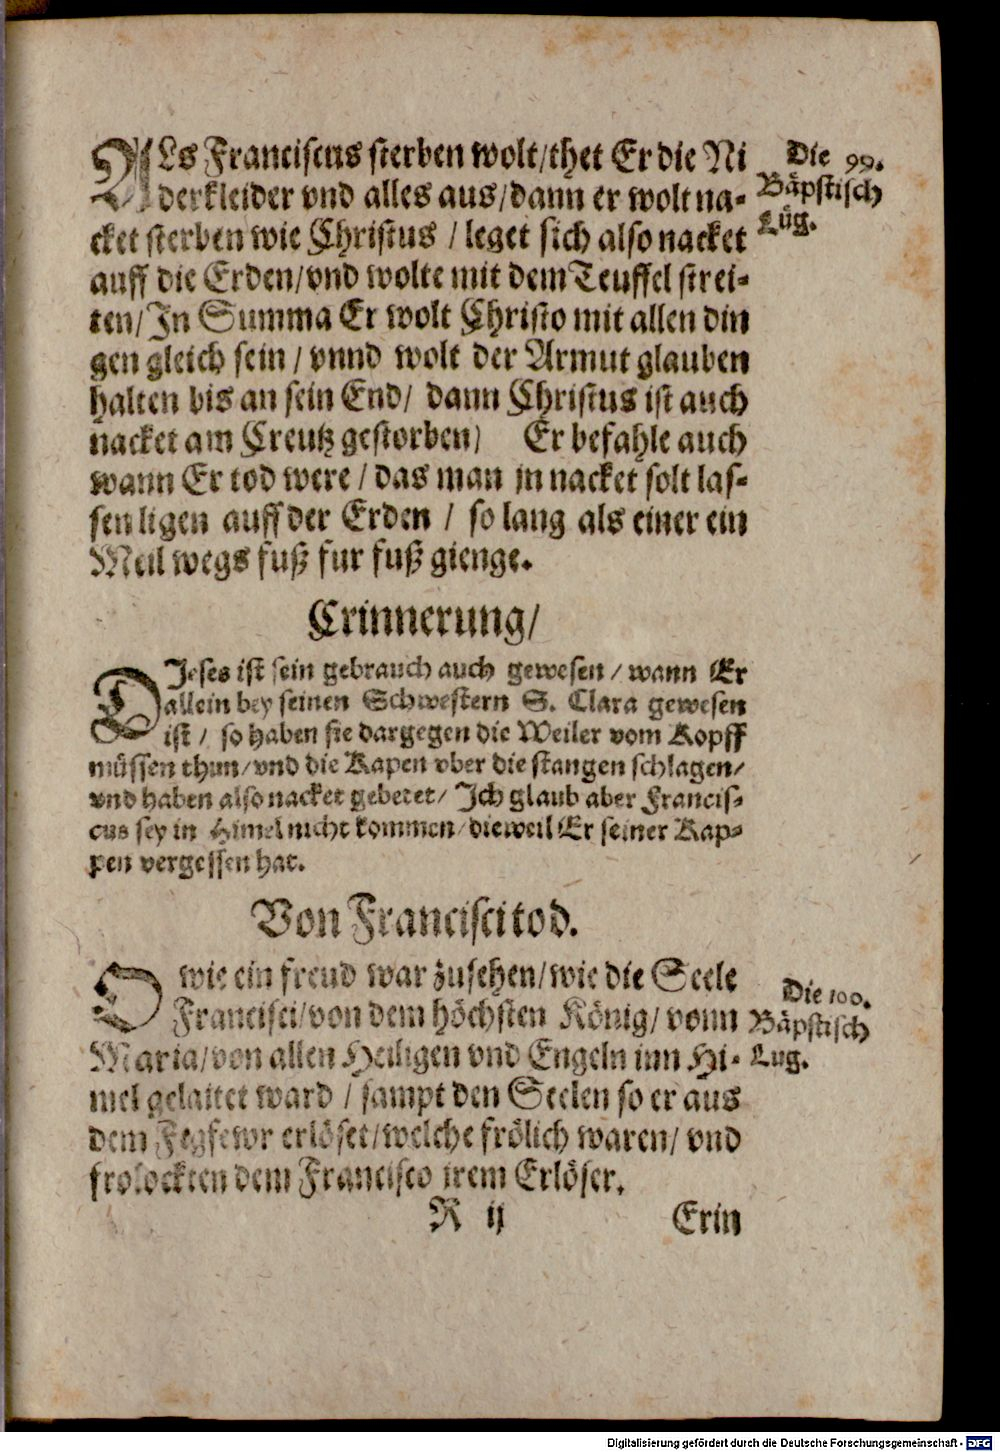 ALs Franciscus sterben wolt/thet Er die Ni
derkleider vnd alles aus/dann er wolt na-
cket sterben wie Christus / leget sich also nacket
auff die Erden/vnd wolte mit dem Teuffel strei-
ten/In Summa Er wolt Christo mit allen din
gen gleich sein / vnnd wolt der Armut glauben
halten bis an sein End/ dann Christus ist auch
nacket am Creutz gestorben) Er befahle auch
wann Er tod were / das man jn nacket solt las-
sen ligen auff der Erden / so lang als einer ein
Meil wegs fuß fur fuß gienge.
Die 99.
Bäpstisch
Lüg.
Erinnerung/
DIeses ist sein gebrauch auch gewesen / wann Er
allein bey seinen Schwestern S. Clara gewesen
ist / so haben sie dargegen die Weiler vom Kopff
müssen thun/vnd die Kapen vber die stangen schlagen/
vnd haben also nacket gebetet/ Ich glaub aber Francis-
cus sey in Himel nicht kommen/dieweil Er seiner Kap-
pen vergessen hat.
Von Francisci tod.
O wie ein freud war zusehen/wie die Seele
Francisci/von dem höchsten König/ vonn
Maria/von allen Heiligen vnd Engeln inn Hi-
mel gelaitet ward / sampt den Seelen so er aus
dem Fegfewr erlöset/welche frölich waren/ vnd
frolockten dem Francisco jrem Erlöser.
Die 100.
Bäpstisch
Lug.
R ij Erin
Digitalisierung gefördert durch die Deutsche Forschungsgemeinschaft - DFG